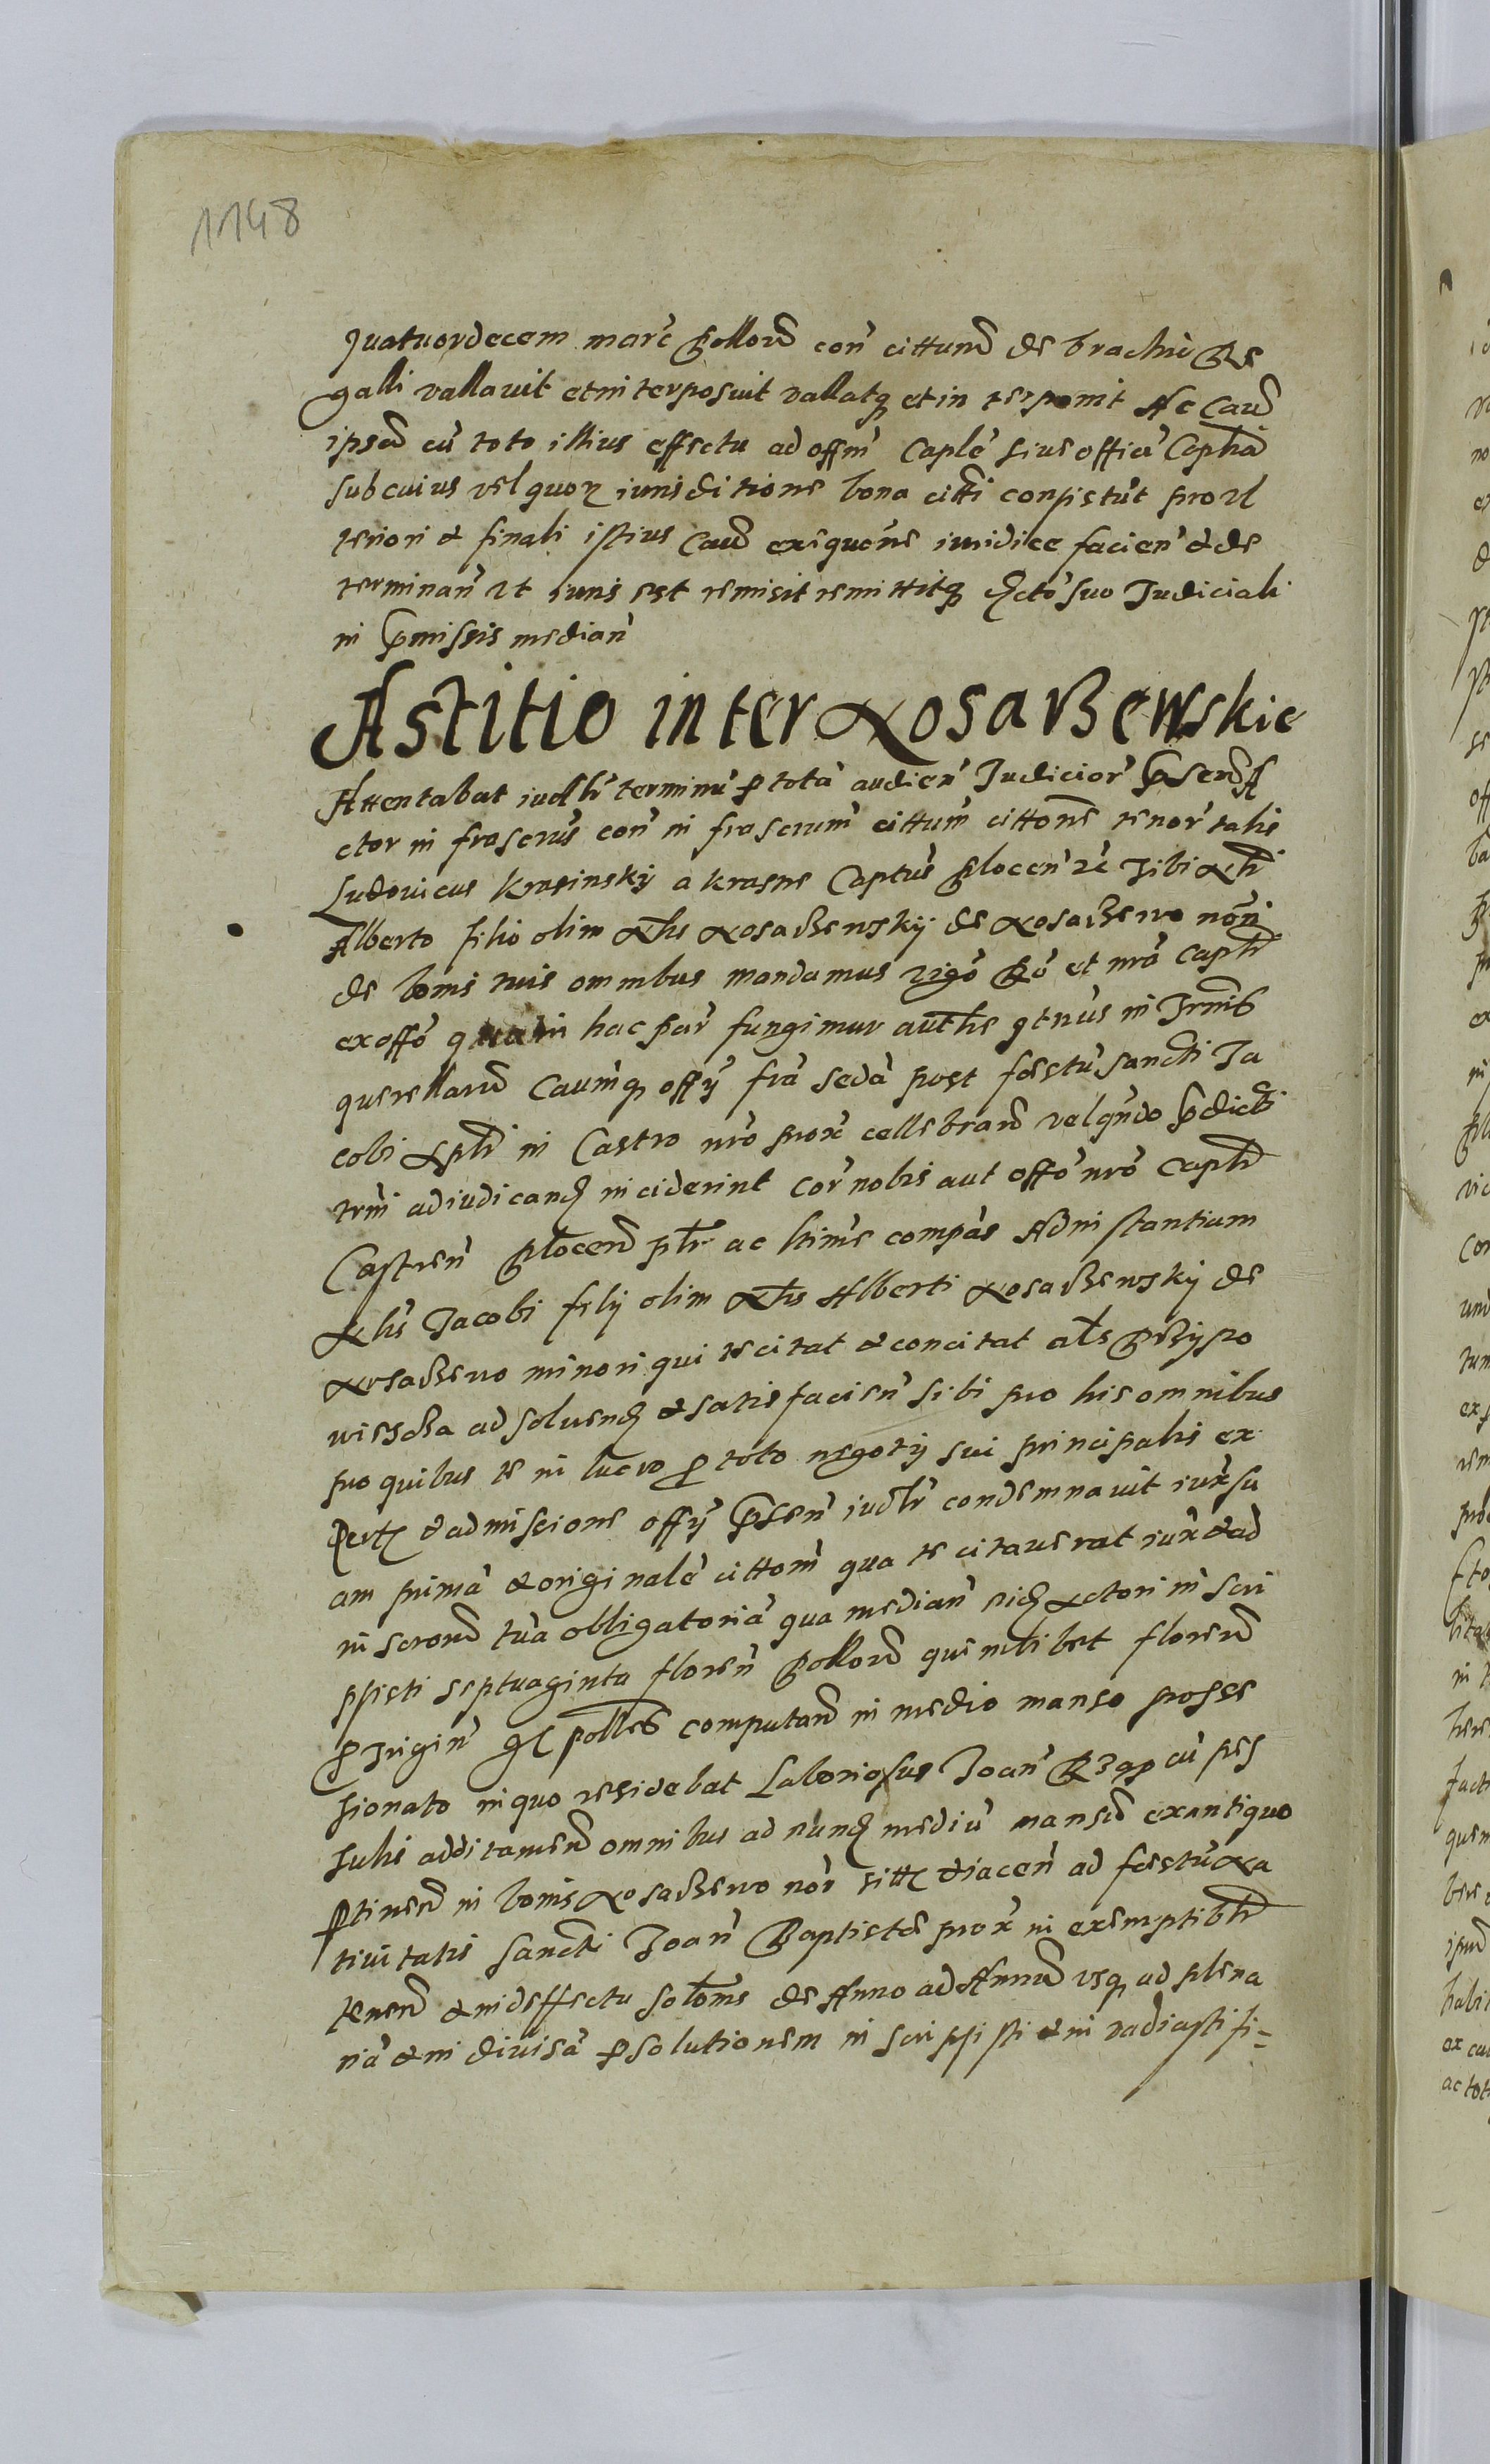 1148
quatuordecem marc pollon con cittum de brachio Re
galli vallavit et interposuit vallatq et in terponit Ac Cau
ipsa cu toto illius effectu ad offm Caple sive officiu Captha
sub cuius vel quor iurisditione bona citti consistut pro vl
teriori & finali istius Cau exequone iuridice facien & de
terminan vt iuris est remisit remittitq dcto suo Judiciali
in pmissis median
Astitio inter Nosarzewskie
Attentabat iudlr terminu p tota audien Judicior psen A
ctor in frascrus con in frascrum cittum cittone tenor talis
Ludovicus Krasinsky a Krasne Captus Plocen rc Tibi Nli
Alberto filio olim Nlis Nosarzewsky de Nosarzewo non
de bonis tuis omnibus mandamus vigo Ro et nro Capli
ex offo qua in hac par fungimur authe qtnus in Trmis
querellaru Caumq offy fra seda post festu sancti Ja
cobi Apli in Castro nro prox cellebran vel qndo pdicti
trmi adiudicand inciderint cor nobis aut offo nro Capli
Castren Plocen plr ac ltime compas Ad instantiam
Nlis Jacobi fily olim Nlis Alberti Nosarzewsky de
Nosarzewo minori qui te citat & concitat als Przypo
wiescza ad solvend & satisfacien sibi pro his omnibus
pro quibus te in lucro p toto negoty sui principalis ex
pert & admissione offy psen iudlr condemnavit iux su
am prima & originale cittom qua te citaverat iux & ad
inscrone tua obligatoria qua median eid Actori inscri
psisti septuaginta floren pollon quemlibet floren
p Trigin gs polles computan in medio manso posse
sionato in quo residebat Laboriosus Joan Rzap cu pes
sulis additamen omnibus ad nund mediu mansu ex antiquo
ptinen in bonis Nosarzewo nor sitt & iacen ad festu Na
tivitatis sancti Joan Baptiste prox in exemptibli
tenen & in deffectu solone de Anno ad Annum vsq ad plena
ria & in divisa psolutionem in scripsisti & in vadiasti si=